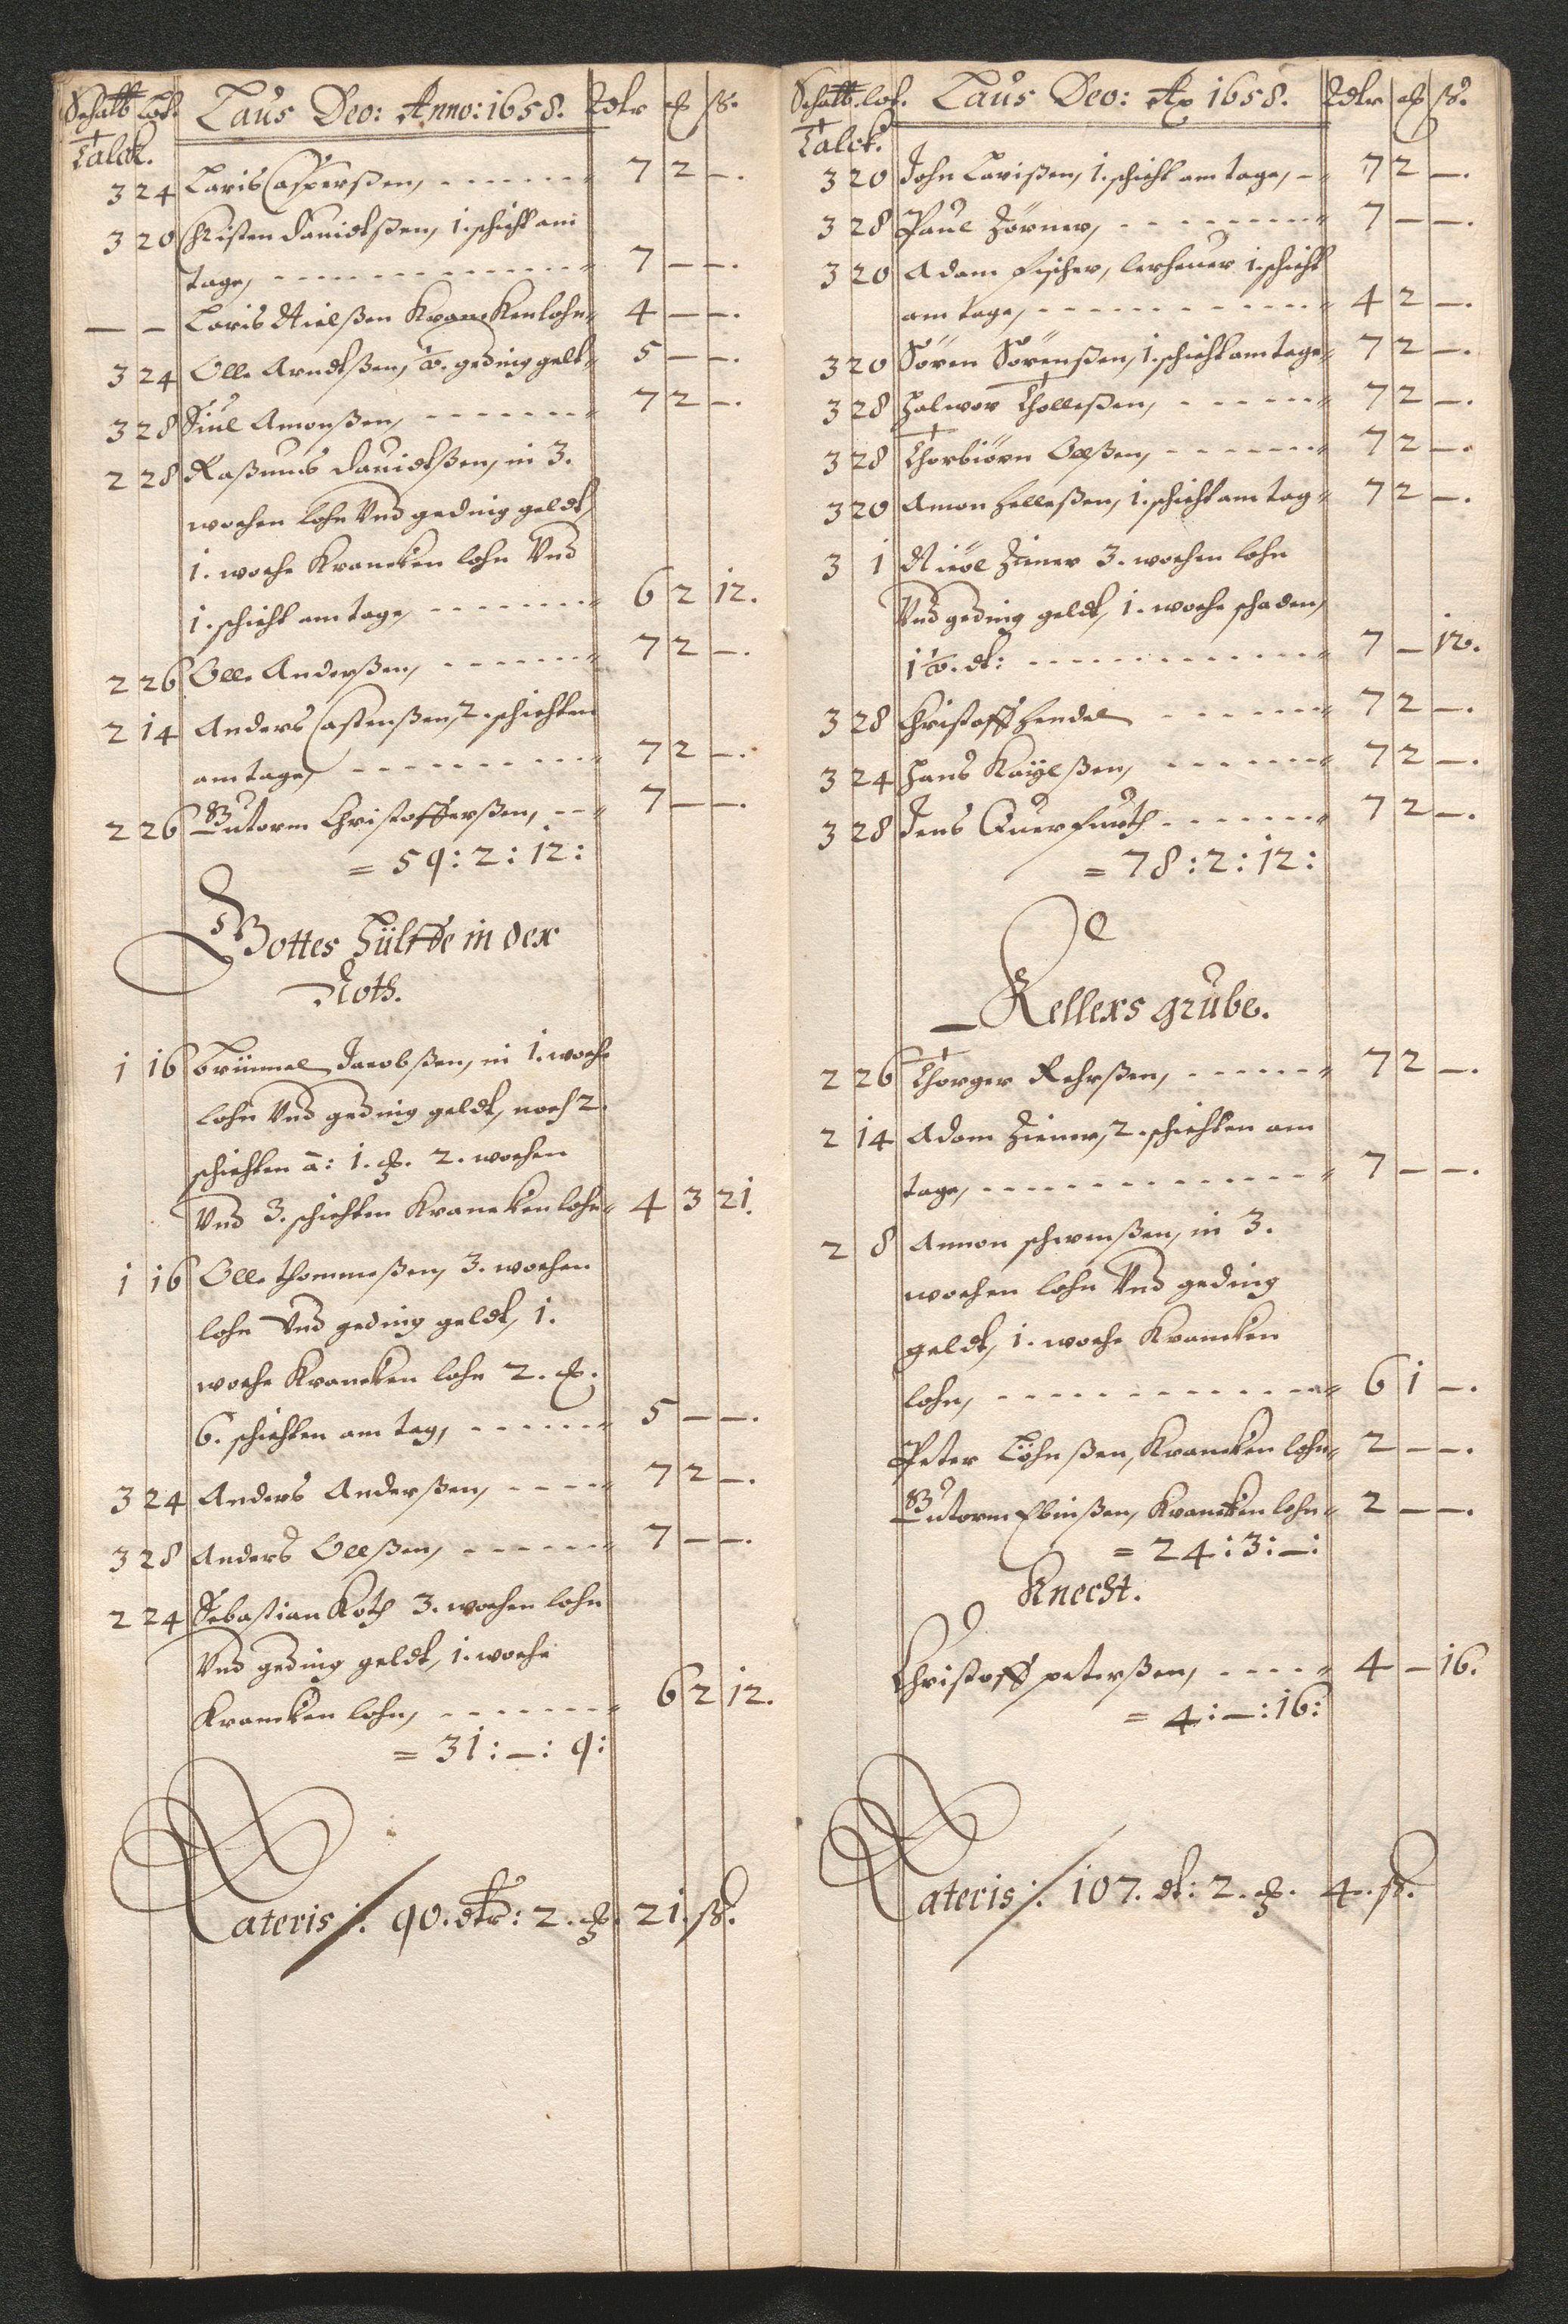 Schatt Lod. Laus Deo: Anno: 1658. Rdlr ₰ ß.
Talck.
3 24 Laris Casperßen, 7 2 —.
3 20 Christen Dauidtßen, 1. schicht am
tage, 7 — —.
— — Laris Nielßen Krancken lohn 4 — —.
3 24 Olle Arndtßen, geding geldt 5 — —.
3 28 Siul Amonßen, 7 2 —.
2 28 Raßmus Dauidtßen, in 3.
wochen lohn Vnd geding geldt,
1. woche Krancken lohn Vnd
1. schicht am tage, 6 2 12.
2 26 Olle Anderßen, 7 2 —.
2 14 Anders Castenßen, 2. schichten
am tage, 7 2 —.
2 26 Gutorm Christofferßen, 7 — —.
= 59: 2: 12:
Gottes Hülffe in der
Noth.
1 16 Brümmel Jacobßen, in 1. woche
lohn Vnd geding geldt, noch 2.
schichten à: 1. ₰. 2. wochen
Vnd 3. schichten Krancken lohn 4 3 21.
1 16 Olle Thommeßen, 3. wochen
lohn Vnd geding geldt, 1.
woche Krancken lohn 2. ₰.
6. schichten am tag, 5 — —.
3 24 Anders Anderßen, 7 2 —.
3 28 Anders Olleßen, 7 — —.
2 24 Sebastian Koth 3. wochen lohn
Vnd geding geldt, 1. woche
Krancken lohn, 6 2 12.
= 31: —: 9:
Lateris ∕. 90. dlr: 2. ₰. 21. ß.
Schatt. lod. Laus Deo: Ao 1658. Rdlr ₰ ß.
Talck.
3 20 John Larißen, 1. schicht am tage, 7 2 —.
3 28 Paul Zörner, 7 — —.
3 20 Adam Fischer, lerheuer 1. schicht
am tage, 4 2 —.
3 20 Sören Sörenßen, 1. schicht am tage 7 2 —.
3 28 Halwor Tholleßen, 7 2 —.
3 28 Thorbiörn Olßen, 7 2 —.
3 20 Amon Helleßen, 1. schicht am tag 7 2 —.
3 1 Nicol Ziener 3. wochen lohn
Vnd geding geldt, 1. woche schaden,
7 — 12.
3 28 Christoff Hendel 7 2 —.
3 24 Hans Kayelßen, 7 2 —.
3 28 Jens Querfurth 7 2 —.
= 78: 2: 12:
Kellers grube.
2 26 Thorger Rehrßen, 7 2 —.
2 14 Adam Ziener, 2. schichten am
tage, 7 — —.
2 8 Ammon schwenßen, in 3.
wochen lohn Vnd geding
geldt, 1. woche Krancken
lohn, 6 1 —.
Peter Löhnßen, Krancken lohn 2 — —.
Gutorm Ebinßen, Krancken lohn 2 — —.
= 24: 3: —:
Knecht.
Christoff peterßen, 4 — 16.
= 4: —: 16:
Lateris ∕. 107. dl: 2. ₰. 4. ß.